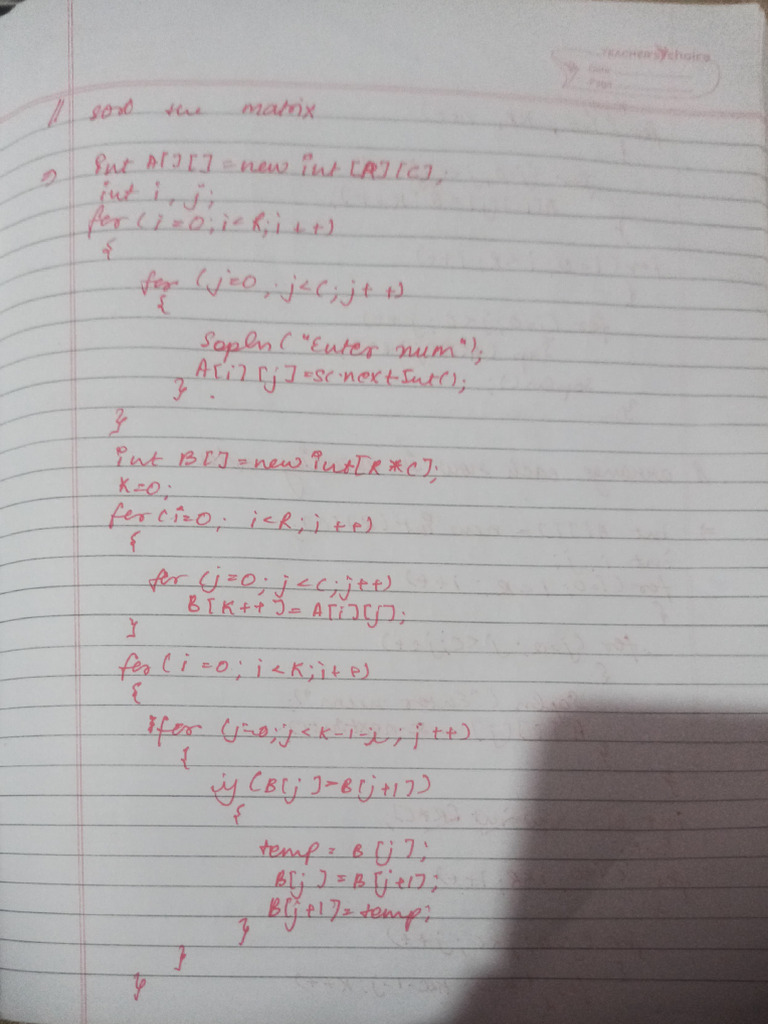 TEACHER'S Choice
Date
Page
// sort the matrix
=> int A[][] = new int [R][C];
int i, j;
for (i=0; i<R; i++)
{
for (j=0; j<C; j++)
{
Sopln ("Enter num");
A[i][j] = sc.nextInt();
}
}
int B[] = new int [R*C];
K=0;
for (i=0; i<R; i++)
{
for (j=0; j<C; j++)
B[K++] = A[i][j];
}
for (i=0; i<K; i++)
{
for (j=0; j<K-1-i; j++)
{
if (B[j]>B[j+1])
{
temp = B[j];
B[j] = B[j+1];
B[j+1] = temp;
}
}
}